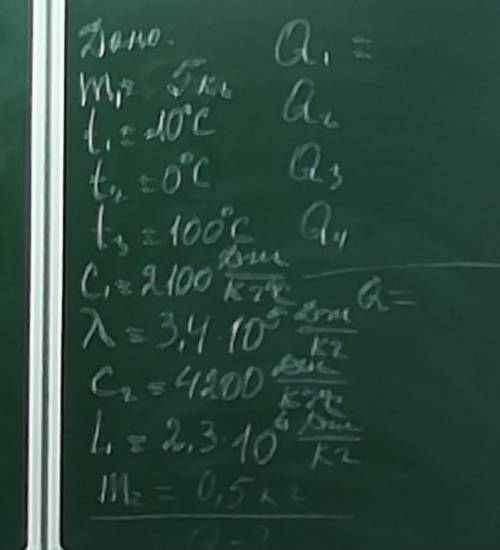 Дано.
m₁ = 5 кг
t₁ = -10°C
t₂ = 0°C
t₃ = 100°C
c₁ = 2100 Дж/кг°C
λ = 3,4·10⁵ Дж/кг
c₂ = 4200 Дж/кг°C
L = 2,3·10⁶ Дж/кг
m₂ = 0,5 кг
Q - ?
Q₁ =
Q₂
Q₃
Q₄
Q =